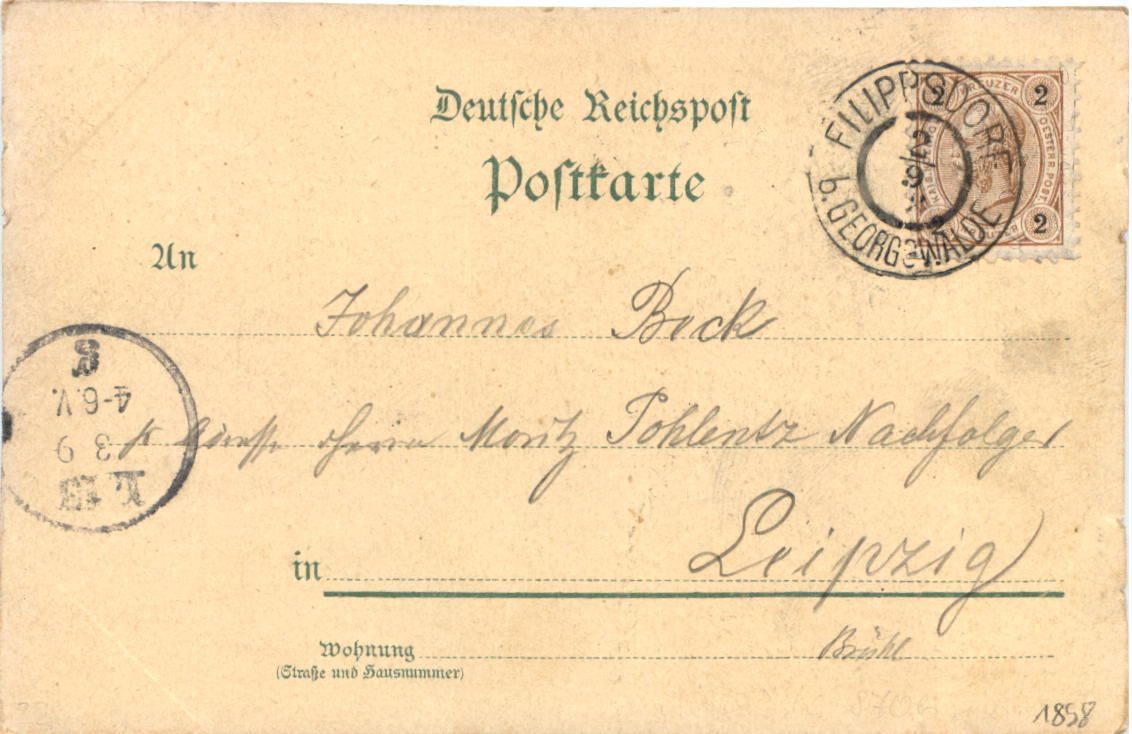 Deutsche Reichspost
Postkarte
FILIPPSDORF
b. GEORGSWALDE
2/9
2 KREUZER 2
OESTERR. POST
2 2
An
Johannes Bock
S
4-6.V.
3 9
Herrn Moritz Pohlentz Nachfolger
in Leipzig
Wohnung Brühl
(Straße und Hausnummer)
1898